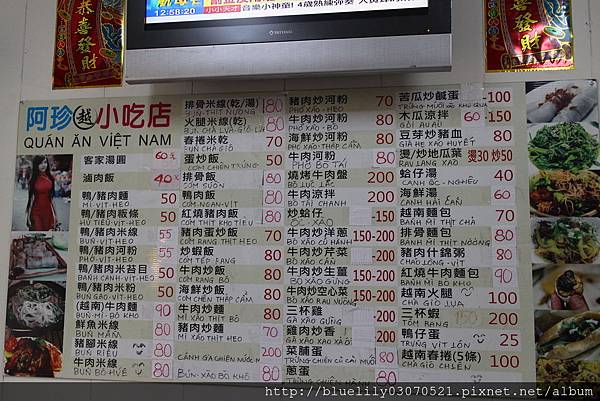 恭喜發財
12:58:20
小小天才 音樂小神童! 4歲熟練彈奏
恭喜發財
阿珍 越 小吃店
QUÁN ĂN VIỆT NAM
客家湯圓 60元
滷肉飯 40元
鴨/豬肉麵 50
MÌ-VỊT-HEO
鴨/豬肉粄條 50
HỦ TIẾU-VỊT-HEO
鴨/豬肉米線 55
BÚN-VỊT-HEO
鴨/豬肉河粉 55
PHỞ-VỊT-HEO
鴨/豬肉米苔目 50
BÁNH CANH-VỊT-HEO
鴨/豬肉米粉 50
BÚN GẠO-VỊT-HEO
(越南)牛肉麵 90
MÌ BÒ KHO
鮮魚米線 90
BÚN MẮM
豬腳米線 80
BÚN RIÊU
牛肉米線 80
BÚN BÒ HUẾ
排骨米線(乾/湯) 80
BÚN THỊT NƯỚNG
火腿米線(乾) 80
BÚN CHẢ LỤA
春捲米乾 70
BÚN CHẢ GIÒ
蛋炒飯 50
CƠM CHIÊN TRỨNG
排骨飯 80
CƠM SƯỜN
鴨肉飯 80
CƠM VỊT
紅燒豬肉飯 80
CƠM THỊT KHO TIÊU
豬肉蛋炒飯 70
CƠM RANG THỊT HEO
炒蝦飯 80
CƠM TÉP RANG
牛肉炒飯 80
CƠM RANG BÒ
海鮮炒飯 80
CƠM CHIÊN THẬP CẨM
牛肉炒麵 80
MÌ XÀO THỊT BÒ
豬肉炒麵 70
MÌ XÀO THỊT HEO
CÁNH GÀ CHIÊN NƯỚC
BÚN-XÀO BÒ KHÔ 80
豬肉炒河粉 70
PHỞ XÀO-HEO
牛肉炒河粉 80
PHỞ XÀO-BÒ
海鮮炒河粉 80
PHỞ XÀO-THẬP CẨM
牛肉河粉 80
PHỞ BÒ TÁI
燒烤牛肉盤 200
BÒ LÚC LẮC
牛肉涼拌 200
BÒ TÁI CHANH
炒蛤仔 150
ỐC XÀO
牛肉炒洋蔥 150-200
BÒ XÀO CỦ HÀNH
牛肉炒芹菜 150-200
BÒ XÀO CẦN
牛肉炒生薑 150-200
BÒ XÀO GỪNG
牛肉炒空心菜 150-200
BÒ XÀO RAU MUỐNG
三杯雞 200
GÀ XÀO GỪNG
雞肉炒香 200
GÀ XÀO XẢ
菜脯蛋 80
TRỨNG CHIÊN CỦ CẢI MUỐI
蔥蛋 80
TRỨNG CHIÊN HÀNH
苦瓜炒鹹蛋 100
TRỨNG MUỐI XÀO KHỔ QUA
木瓜涼拌 60
豆芽炒豬血 80
GIÁ HẸ XÀO HUYẾT
燙/炒地瓜葉 燙30 炒50
RAU LANG XÀO
蛤仔湯 40
CANH ỐC-NGHÊU
海鮮湯 40
CANH HẢI SẢN
越南麵包 70
BÁNH MÌ THỊT
排骨麵包 80
BÁNH MÌ THỊT NƯỚNG
豬肉什錦粥 80
CHÁO LÒNG-VỊT
紅燒牛肉麵包 90
BÁNH MÌ BÒ KHO
越南火腿 100
CHẢ GIÒ LỤA
三杯蝦 150 200
TÔM RANG
鴨仔蛋 25
TRỨNG VỊT LỘN
越南春捲(5條) 100
CHẢ GIÒ CHIÊN
http://bluelily03070521.pixnet.net/album